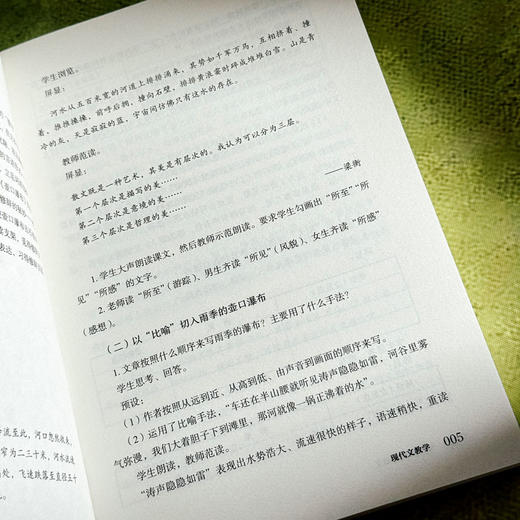 学生浏览。
屏显：
河水从五百米宽的河道上排排涌来，其势如千军万马，互相挤着、撞
着，推推搡搡，前呼后拥，撞向石壁，排排黄浪霎时碎成堆堆白雪。山是青
冷的灰，天是寂寂的蓝，宇宙间仿佛只有这水的存在。
教师范读。
屏显：
散文既是一种艺术，其美是有层次的。我认为可以分为三层。
第一个层次是描写的美……
第二个层次是意境的美……
第三个层次是哲理的美……
——梁衡
1. 学生大声朗读课文，然后教师示范朗读。要求学生勾画出“所至”“所
见”“所感”的文字。
2. 老师读“所至”（游踪）、男生齐读“所见”（风貌）、女生齐读“所感”
（感想）。
（二）以“比喻”切入雨季的壶口瀑布
1. 文章按照什么顺序来写雨季的瀑布？主要用了什么手法？
学生思考、回答。
预设：
（1）作者按照从远到近、从高到低、由声音到画面的顺序来写。
（2）运用了比喻手法，“车还在半山腰就听见涛声隐隐如雷，河谷里雾
气弥漫，我们大着胆子下到滩里，那河就像一锅正沸着的水”。
学生朗读，教师范读。
“涛声隐隐如雷”表现出水势浩大、流速很快的样子，语速稍快，重读
现代文教学 005
流至此，河口忽然收束，
窄为二三十米，河水流速
处，飞速跌落至直径五十